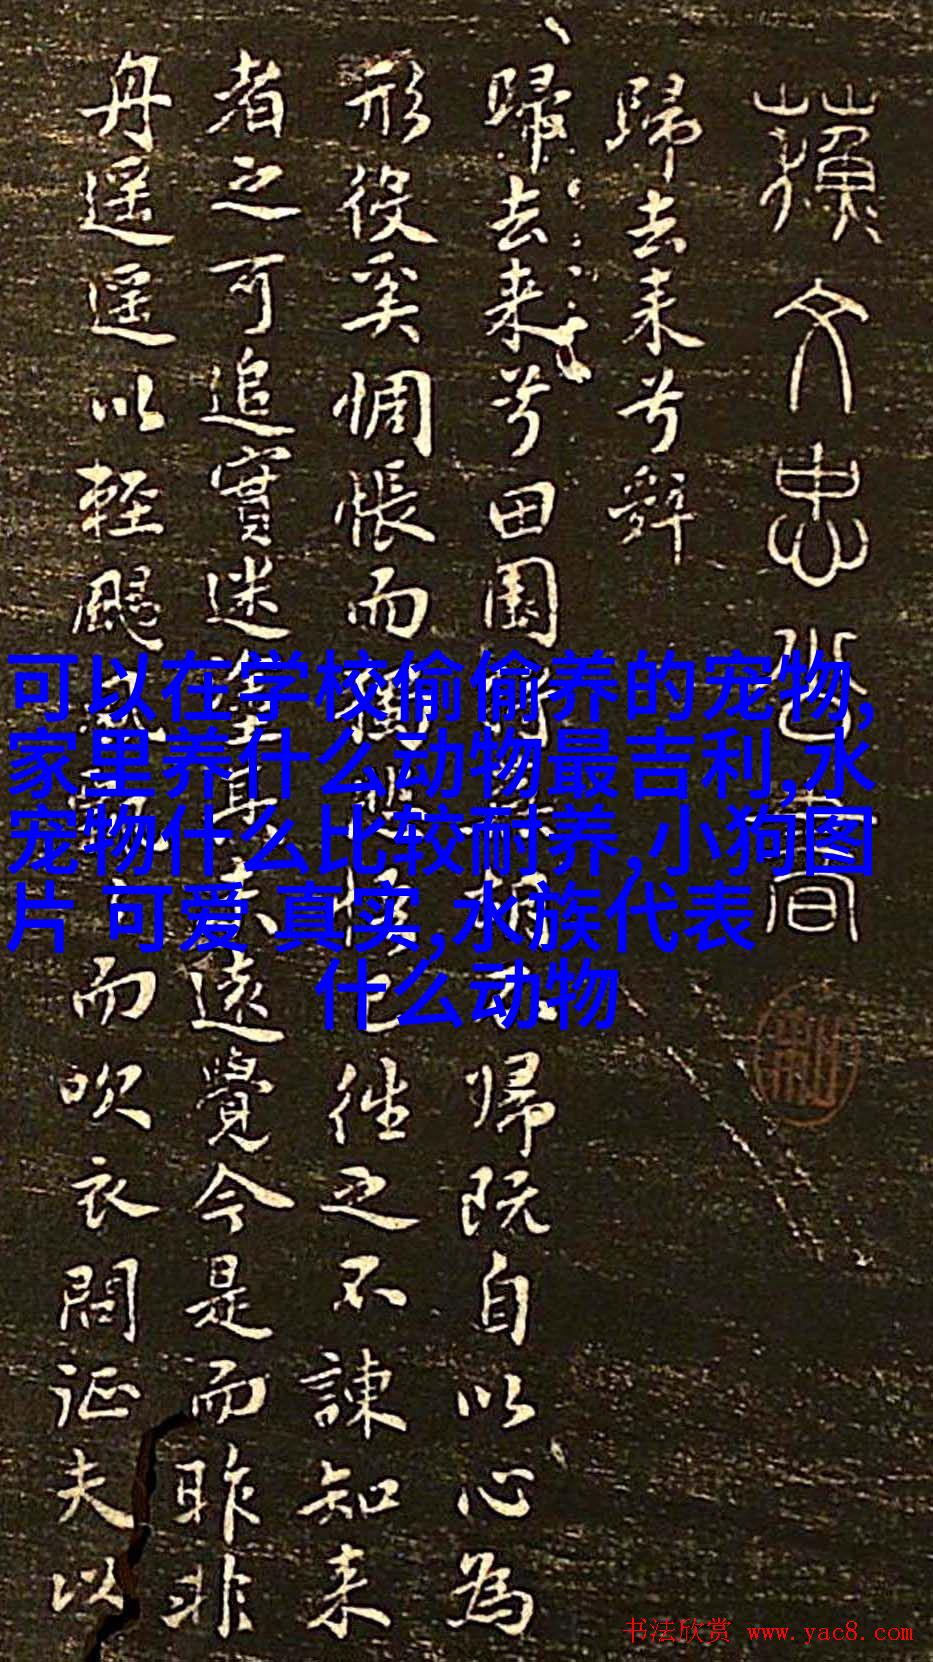 蘇文忠公書
歸去来兮辭
歸去来兮田園將蕪胡不帰既自以心為
形役奚惆悵而獨悲悟已往之不諫知来
者之可追實迷塗其未遠覺今是而昨非
舟遥遥以輕颺風飄而吹衣問征夫以
可以在学校偷偷养的宠物,
家里养什么动物最吉利,水
宠物什么比较耐养,小狗图
片 可爱 真实,水族代表
什么动物
书法欣赏 www.yac8.com